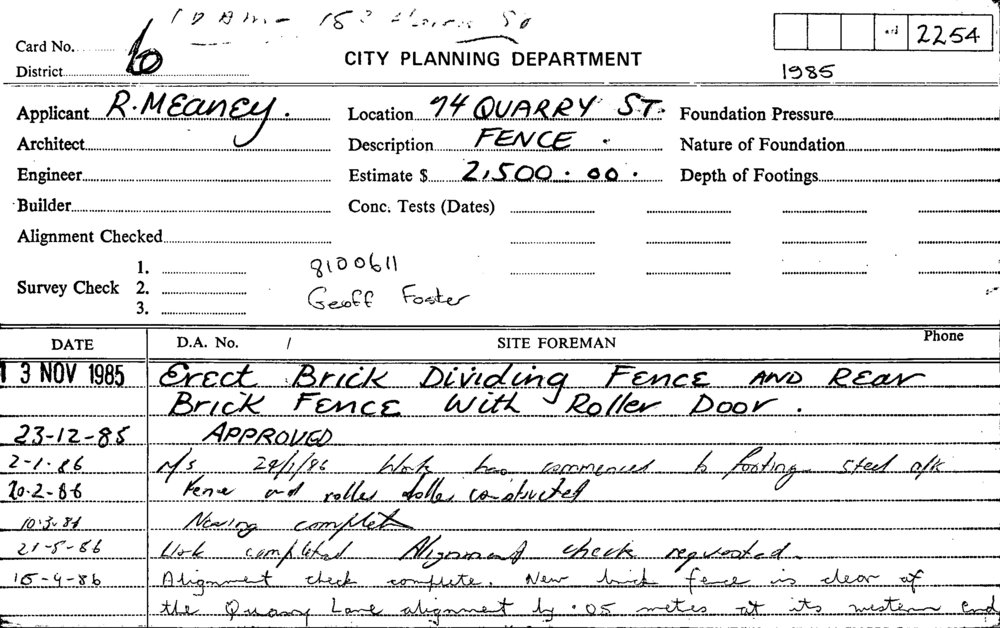 Card No.
District 6
CITY PLANNING DEPARTMENT
2254
1985
Applicant R. MEANEY. Location 74 QUARRY ST. Foundation Pressure
Architect Description FENCE. Nature of Foundation
Engineer Estimate $ 2,500.00. Depth of Footings
Builder Conc. Tests (Dates)
Alignment Checked
1. 8100611
Survey Check 2. Geoff Foster
3.
DATE D.A. No. / SITE FOREMAN Phone
13 NOV 1985 Erect Brick Dividing Fence AND Rear
Brick Fence With Roller Door.
23-12-85 APPROVED
2-1-86 24/1/86 Work has commenced footing steel o/k
20-2-86 Fence and roller constructed
10-3-86 Nearing complete
21-5-86 Work completed Alignment check requested.
15-4-86 Alignment check complete. New brick fence is clear of
the Quarry Lane alignment by .05 metres at its western end